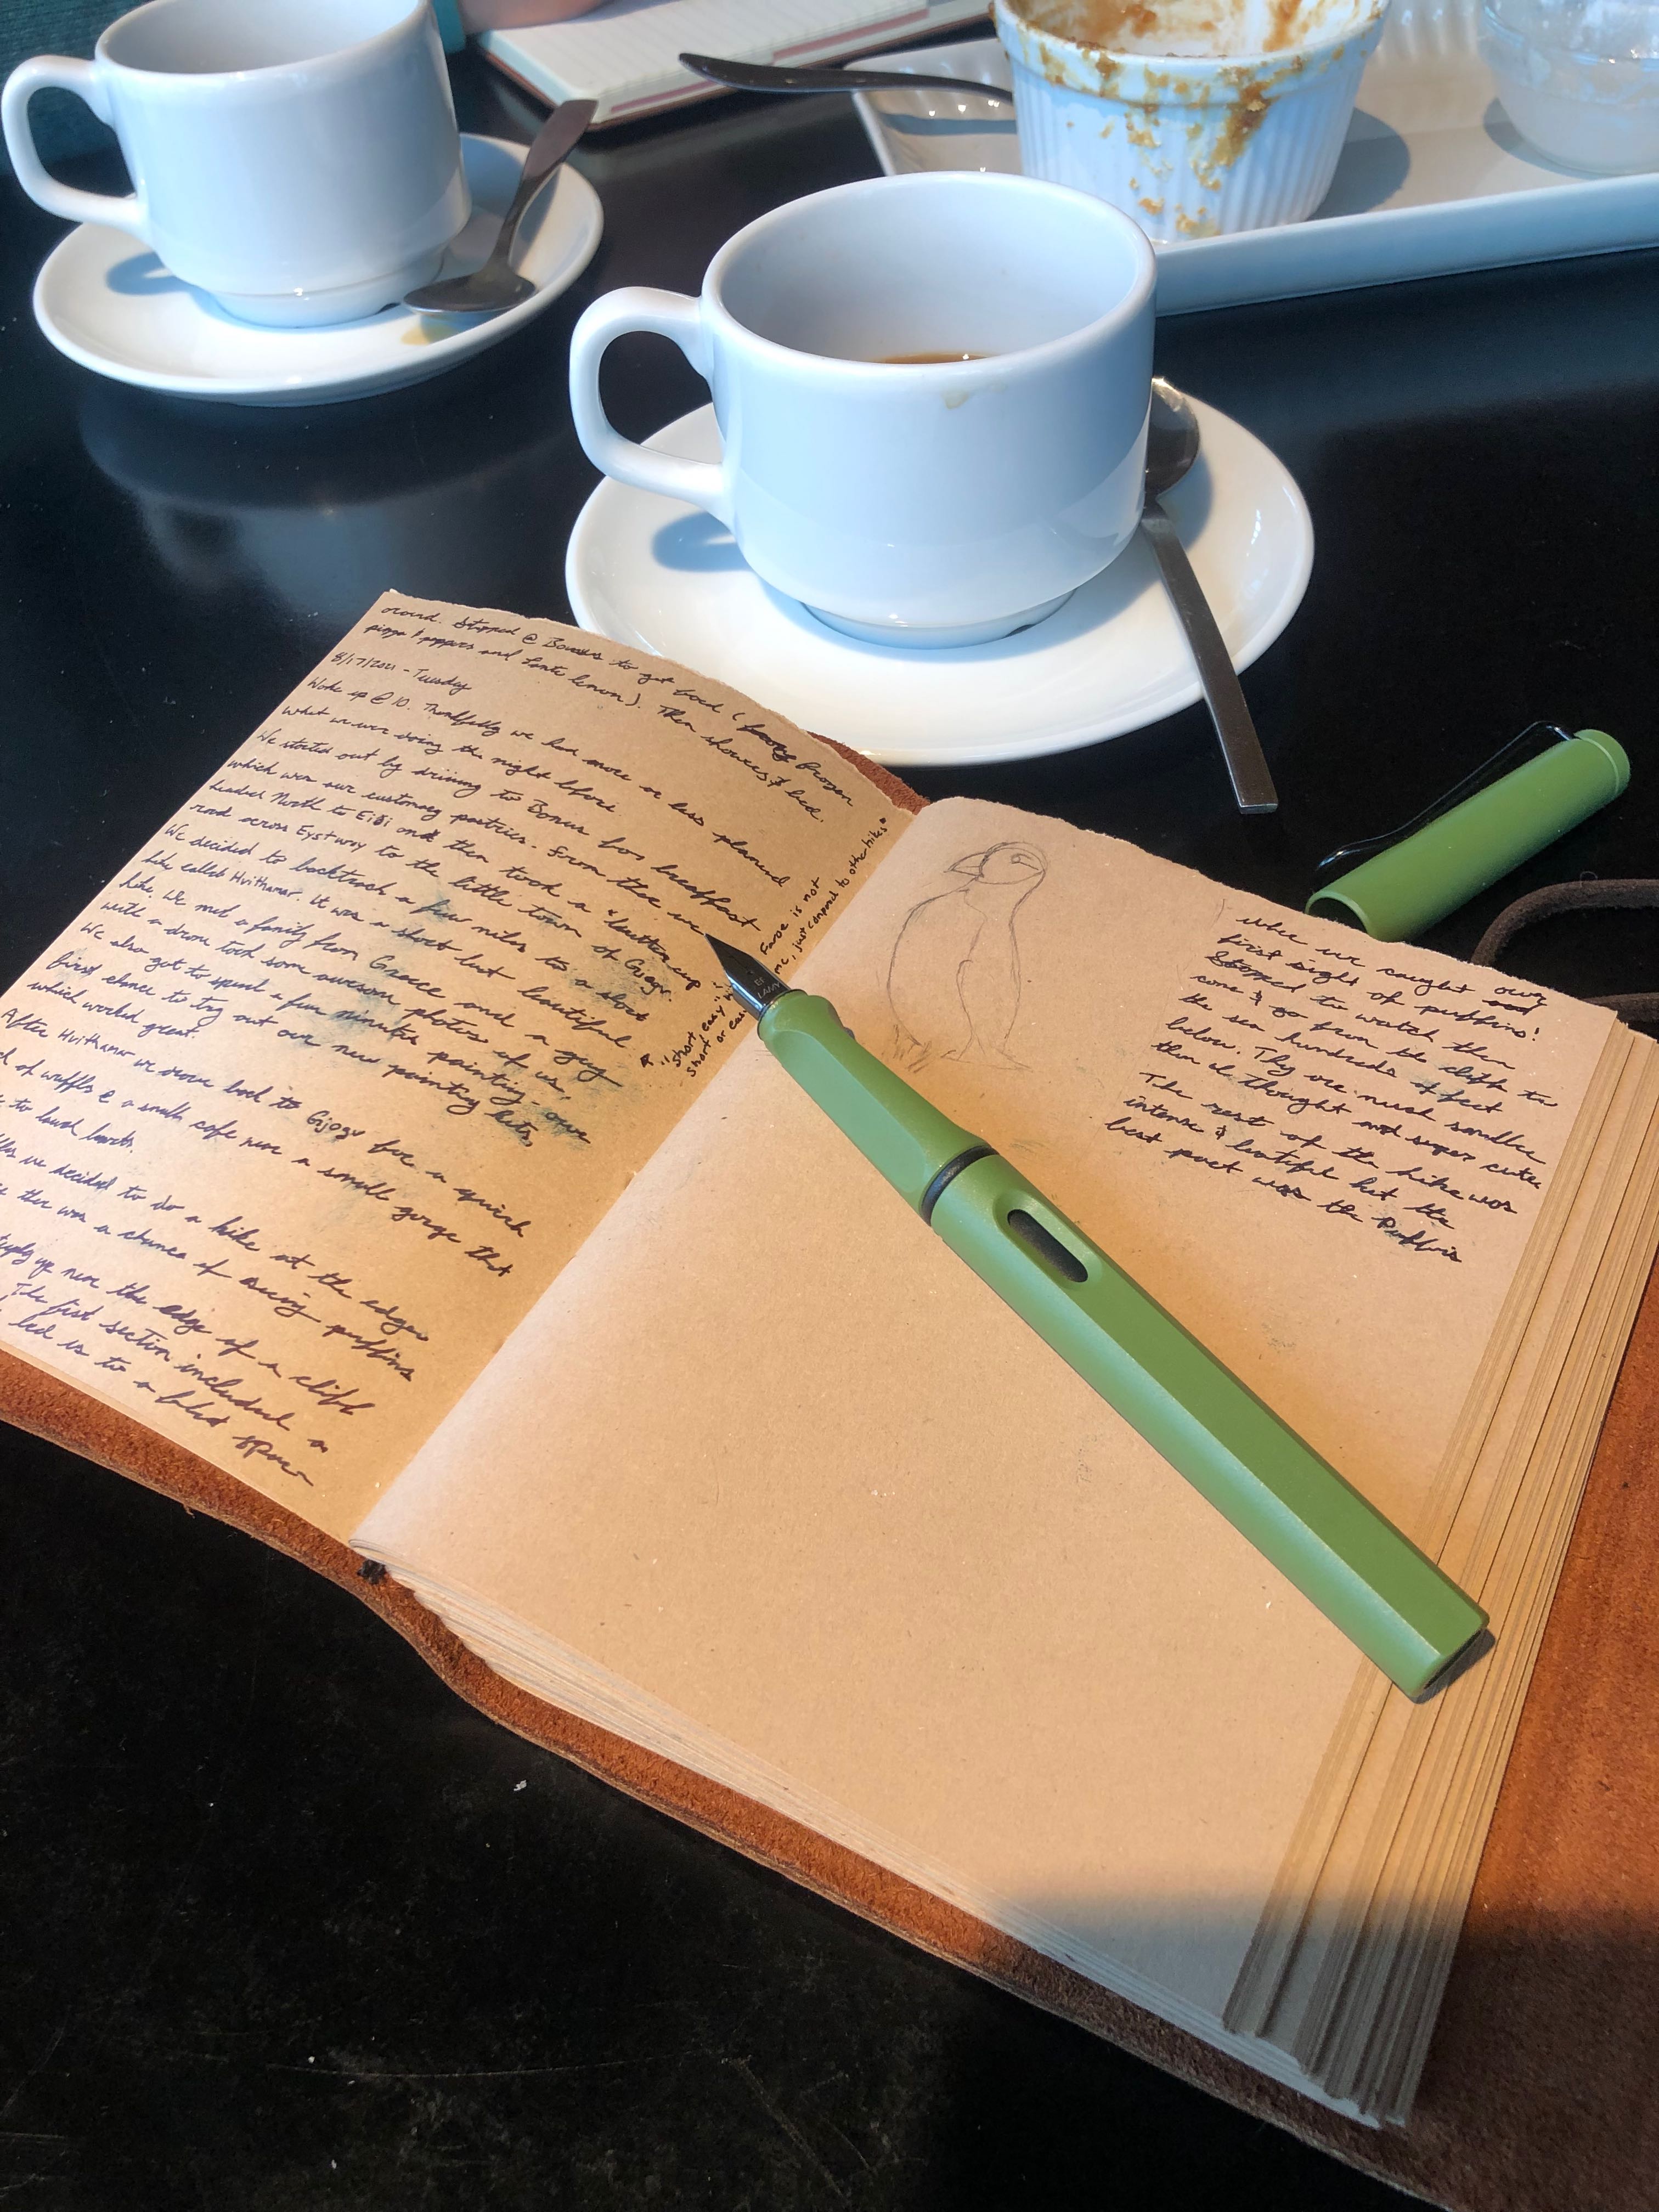 around. Stopped @ Bonus to get food (frozen
pizza & poppers and Fanta lemon). Then showers & bed.
8/17/2021 - Tuesday
Woke up @ 10. Thankfully we had more or less planned
what we were doing the night before
We started out by driving to Bonus for breakfast
which was our customary pastries. From there we
headed North to Eiði and then took a "buttercup
road across Eysturoy to the little town of Gjogv.
We decided to backtrack a few miles to a short
hike called Hvithamar. It was a short but beautiful
hike. We met a family from Greece and a guy
with a drone took some awesome photos of us.
We also got to spend a few minutes painting - our
first chance to try out our new painting kits,
which worked great.
After Hvithamar we drove back to Gjogv for a quick
of waffles @ a small cafe near a small gorge that
to launch boats.
we decided to do a hike at the edges
there was a chance of seeing puffins
up near the edge of a cliff
The first section included a
led us to a
"short easy"
short or eas
Faroe is not
just compared to other hikes*
where we caught our
first sight of puffins!
Stopped to watch them
come & go from the cliffs to
the sea hundreds of feet
below. They are much smaller
than I thought and super cute.
The rest of the hike was
intense & beautiful but the
best part was the Puffins
EF
LAMY